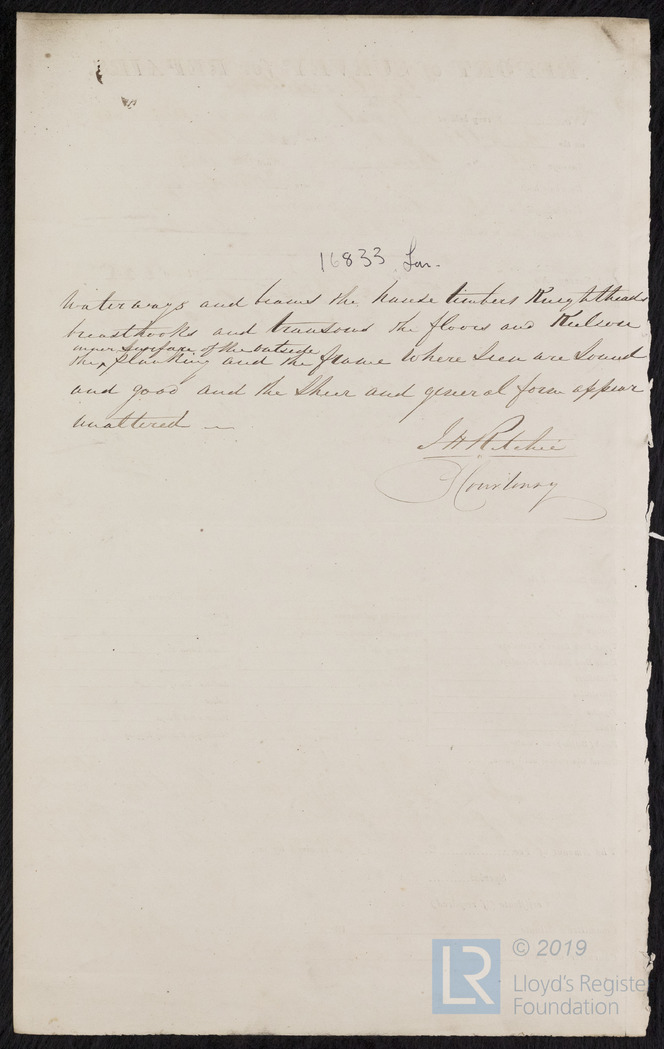 16833 Lon.
Waterways and beams the hause timbers Knightheads
breasthooks and transoms the floors and Keelson
inner Surface of the outside
the ^ planking and the frame where seen are Sound
and good and the Sheer and general form appear
unaltered –
J H Ritchie
Courtenay
© 2019
LR
Lloyd's Register
Foundation